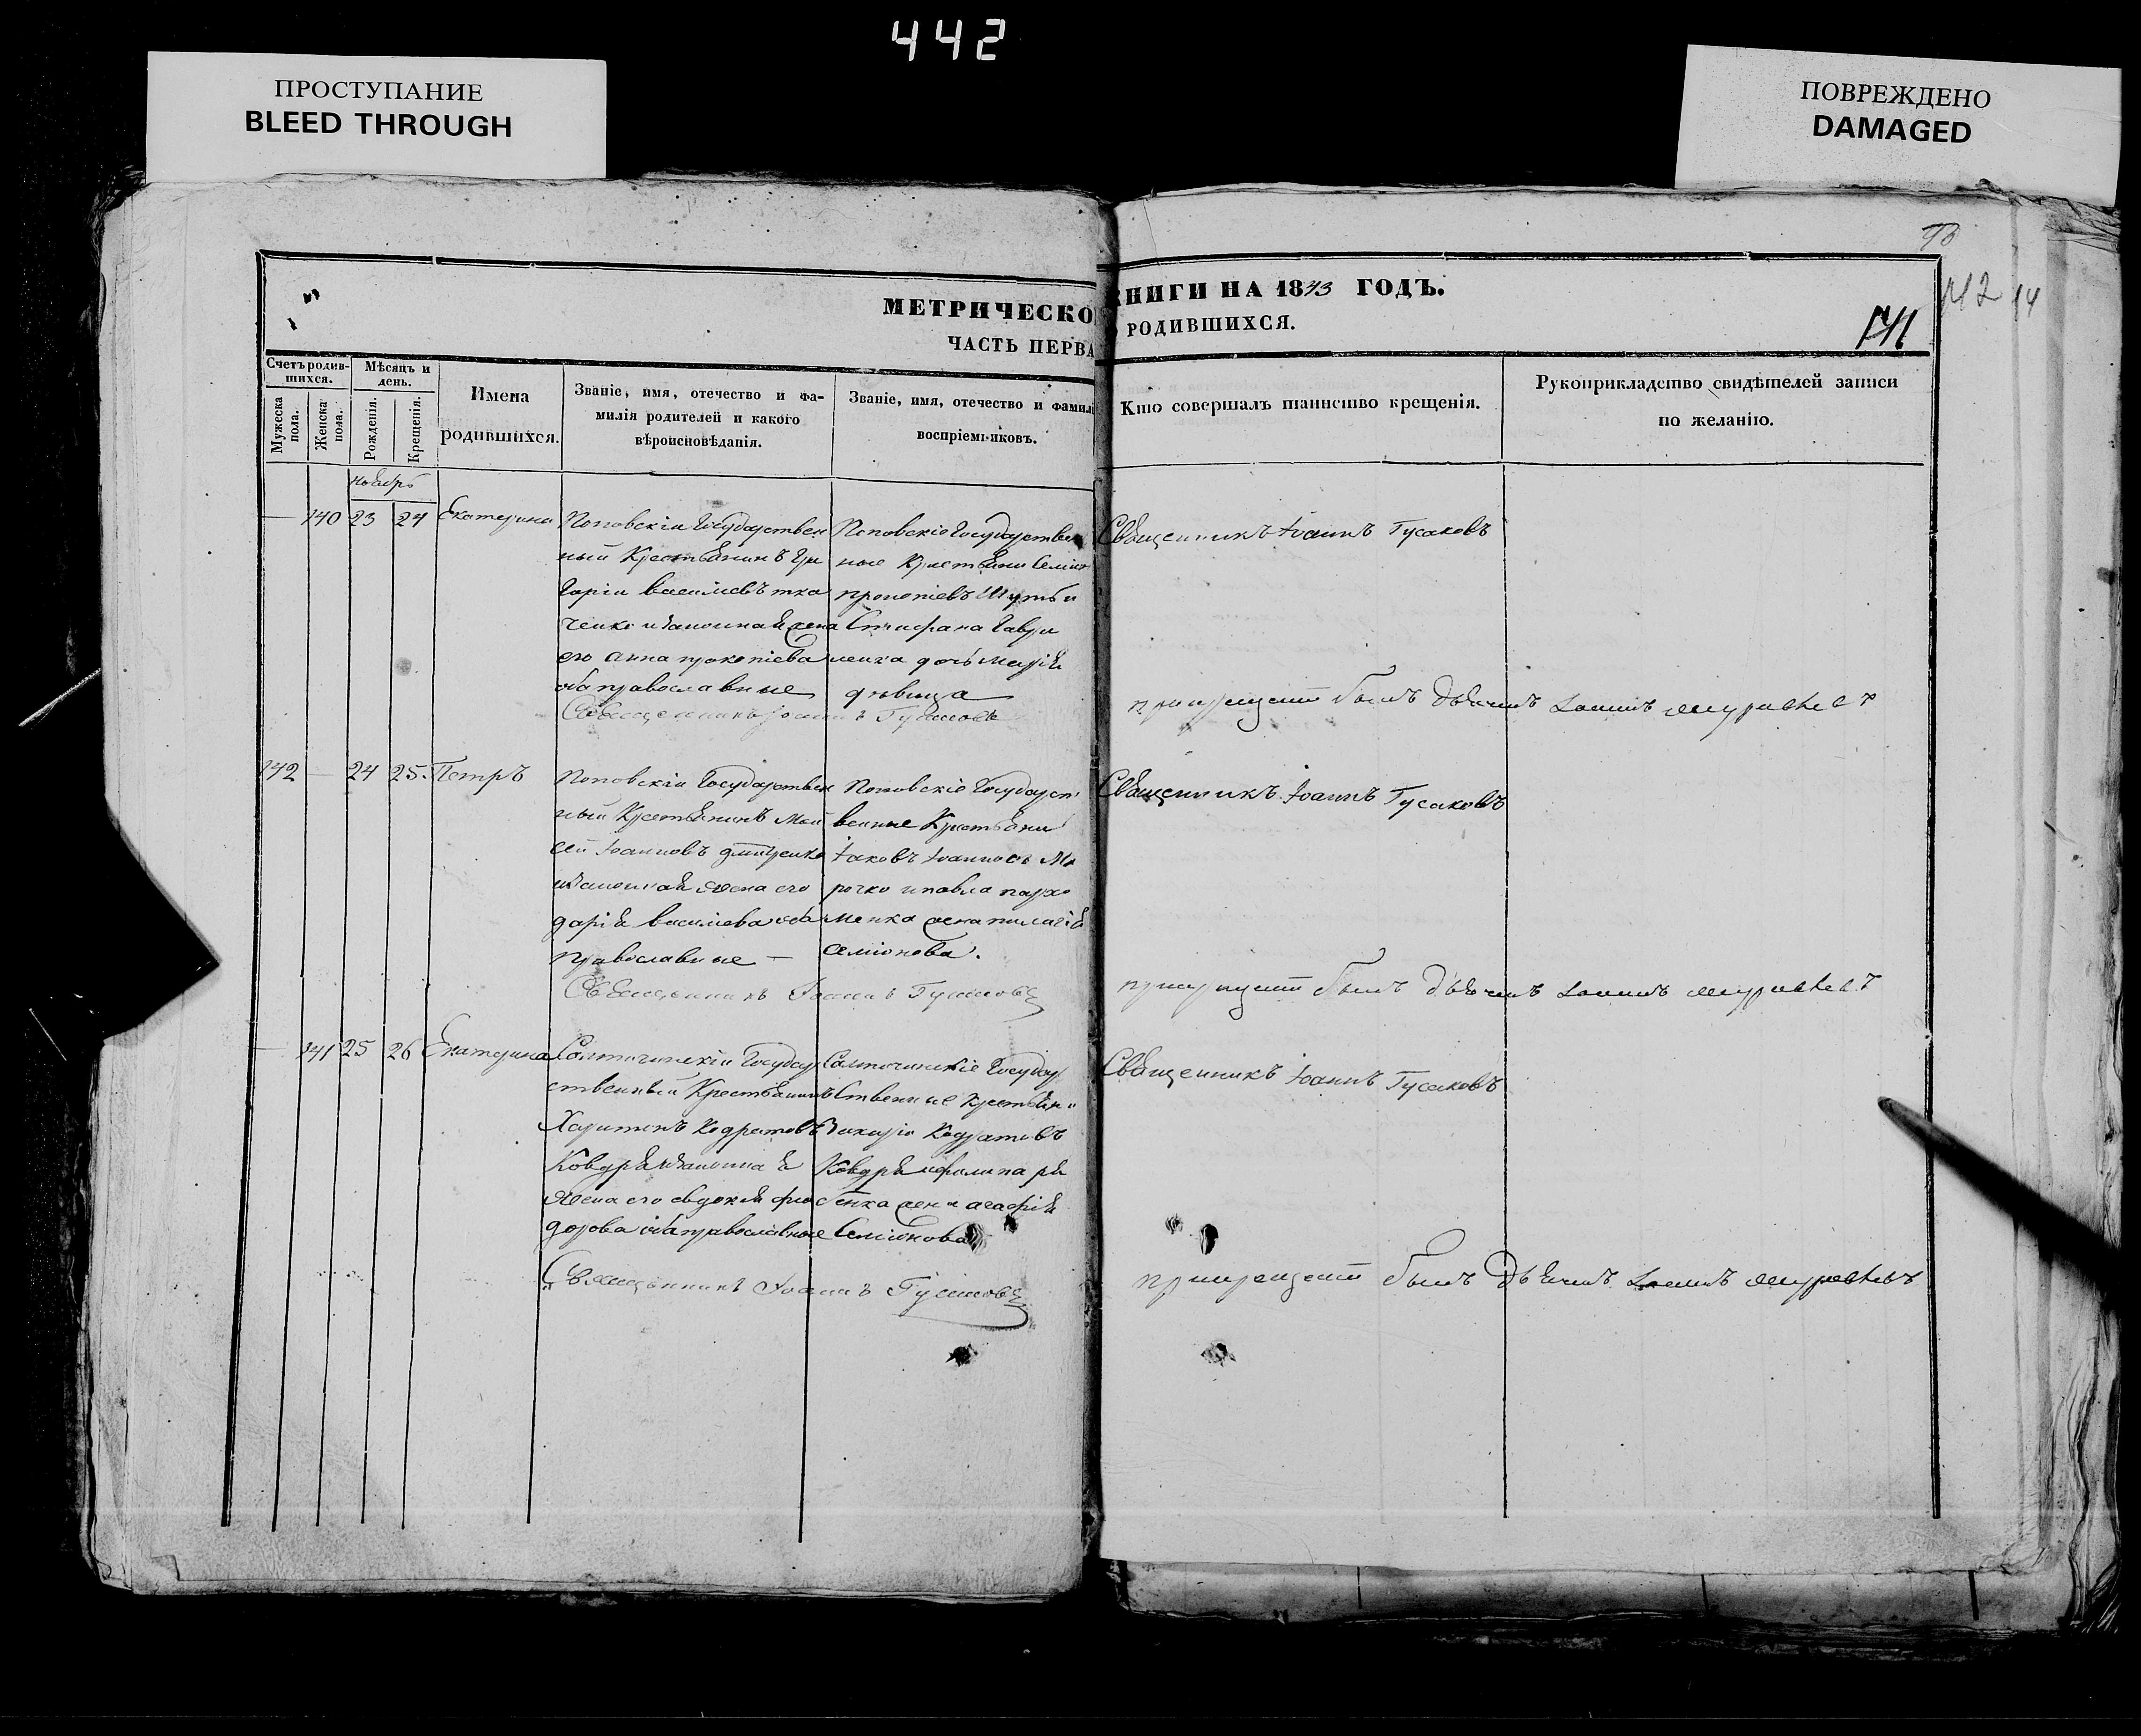 442
ПРОСТУПАНИЕ
BLEED THROUGH
ПОВРЕЖДЕНО
DAMAGED
МЕТРИЧЕСКО
НИГИ НА 1843 ГОДЪ.
ЧАСТЬ ПЕРВА
РОДИВШИХСЯ.
141
142
Счетъ родив-
шихся.
Мужеска
пола.
Женска
пола.
Мѣсяцъ и
день.
Рожденія.
Крещенія.
Имена
родившихся.
Званіе, имя, отечество и фа-
милія родителей и какого
вѣроисповѣданія.
Званіе, имя, отечество и фамил
воспріемниковъ.
Кто совершалъ таинство крещенія.
Рукоприкладство свидѣтелей записи
по желанію.
ноябрь
140 23 24 Екатерина
Поповскій Государствен
ный Крестьянинъ Гри
горій Василиевъ тка
ченко и законная жена
его Анна Прокопіева
оба православные
Поповскіе Государствен
ные Крестьяни Семіон
Прокопіевъ
Стефана Гаври
ленка дочь Марія
дѣвица
Священникъ Іоаннъ Гусаковъ
Священникъ Іоаннъ Гусаковъ
при крещеніи былъ Дьячекъ
142 — 24 25 Петръ
Поповскій Государствен
ный Крестьянинъ Мой
сей Іоанновъ Дмитренко
и законная жена его
Дарія Василіева оба
православные —
Поповскіе Государст
венные Крестьяни
Іаковъ Іоанновъ Ма
рочко и Павла Пархо
менка жена Пилагія
Семіонова.
Священникъ Іоаннъ Гусаковъ
Священникъ Іоаннъ Гусаковъ
при крещеніи былъ Дьячекъ
— 141 25 26 Екатерина
Государ
ственный Крестьянинъ
Харитонъ Кодратовъ
Ковдря и законная
жена его Евдокія Фио
дорова оба православные
Государ
ственные Крестьяни
Захарій Кодратовъ
Ковдря и
жена Агафія
Семіонова
Священникъ Іоаннъ Гусаковъ
Священникъ Іоаннъ Гусаковъ
при крещеніи былъ Дьячекъ